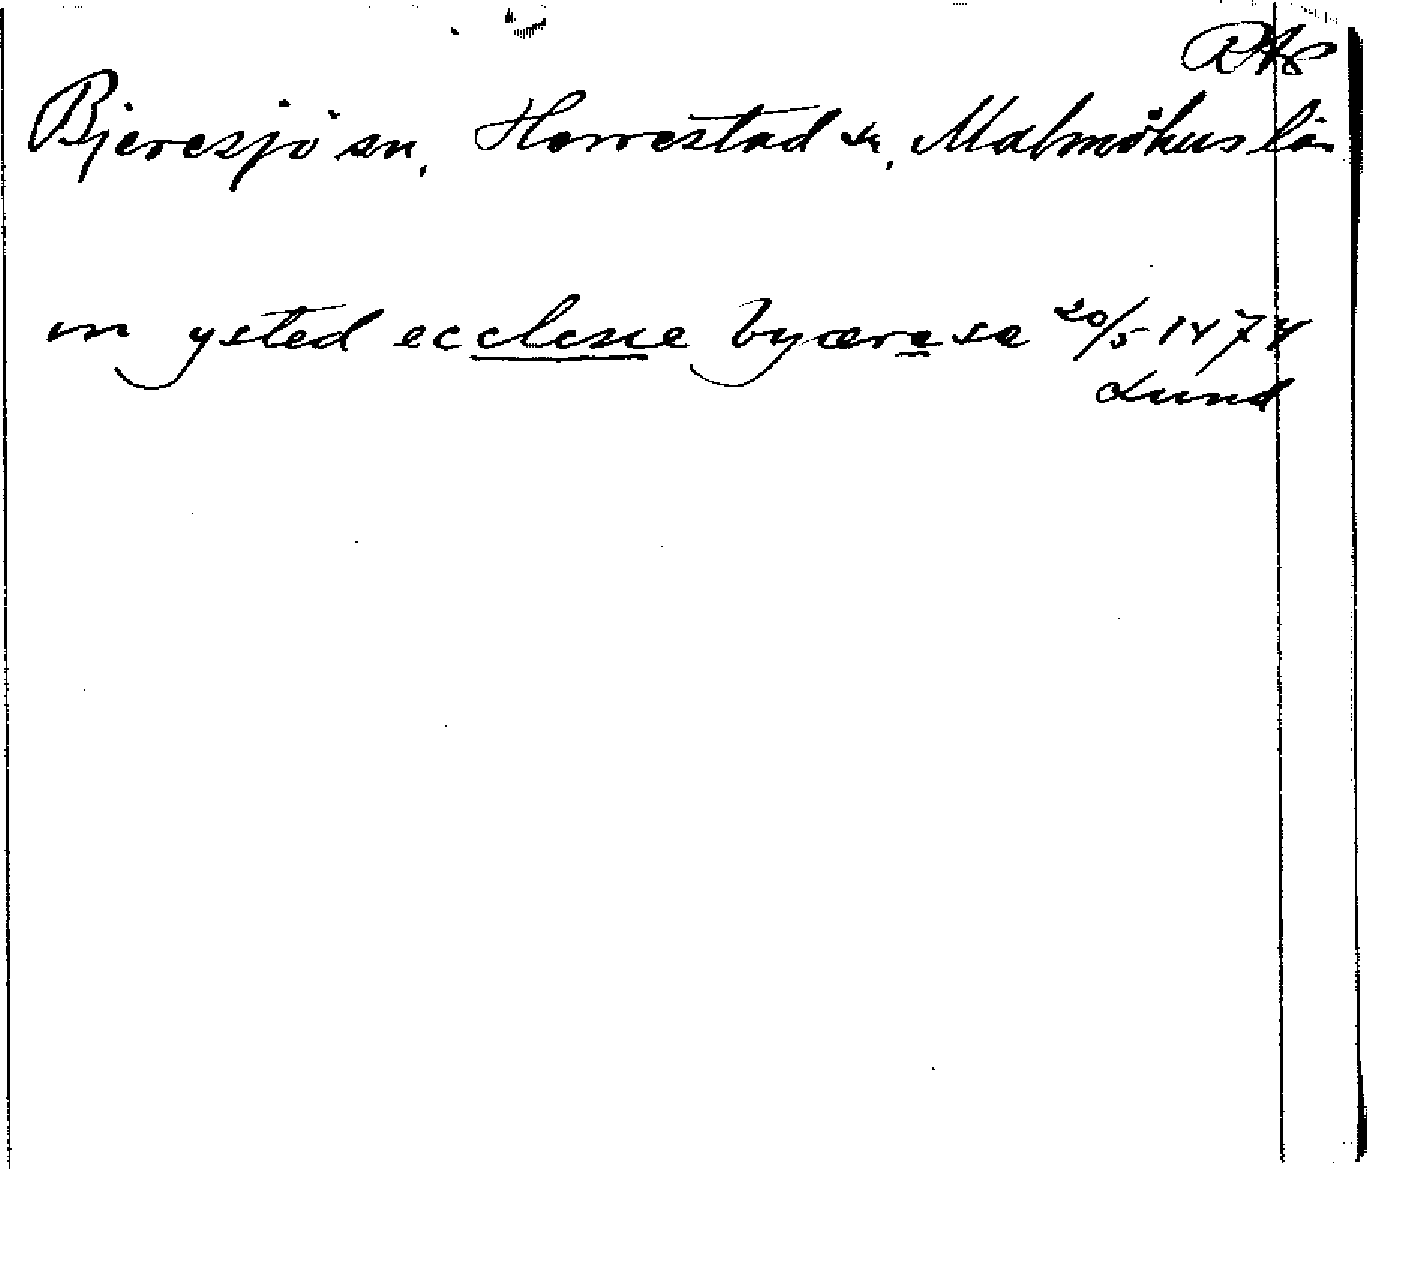 RAP
Bjeresjö sn, Herrestad hd, Malmöhus län
in ysted ecclesie byæresæ 20/5 1474
Lund